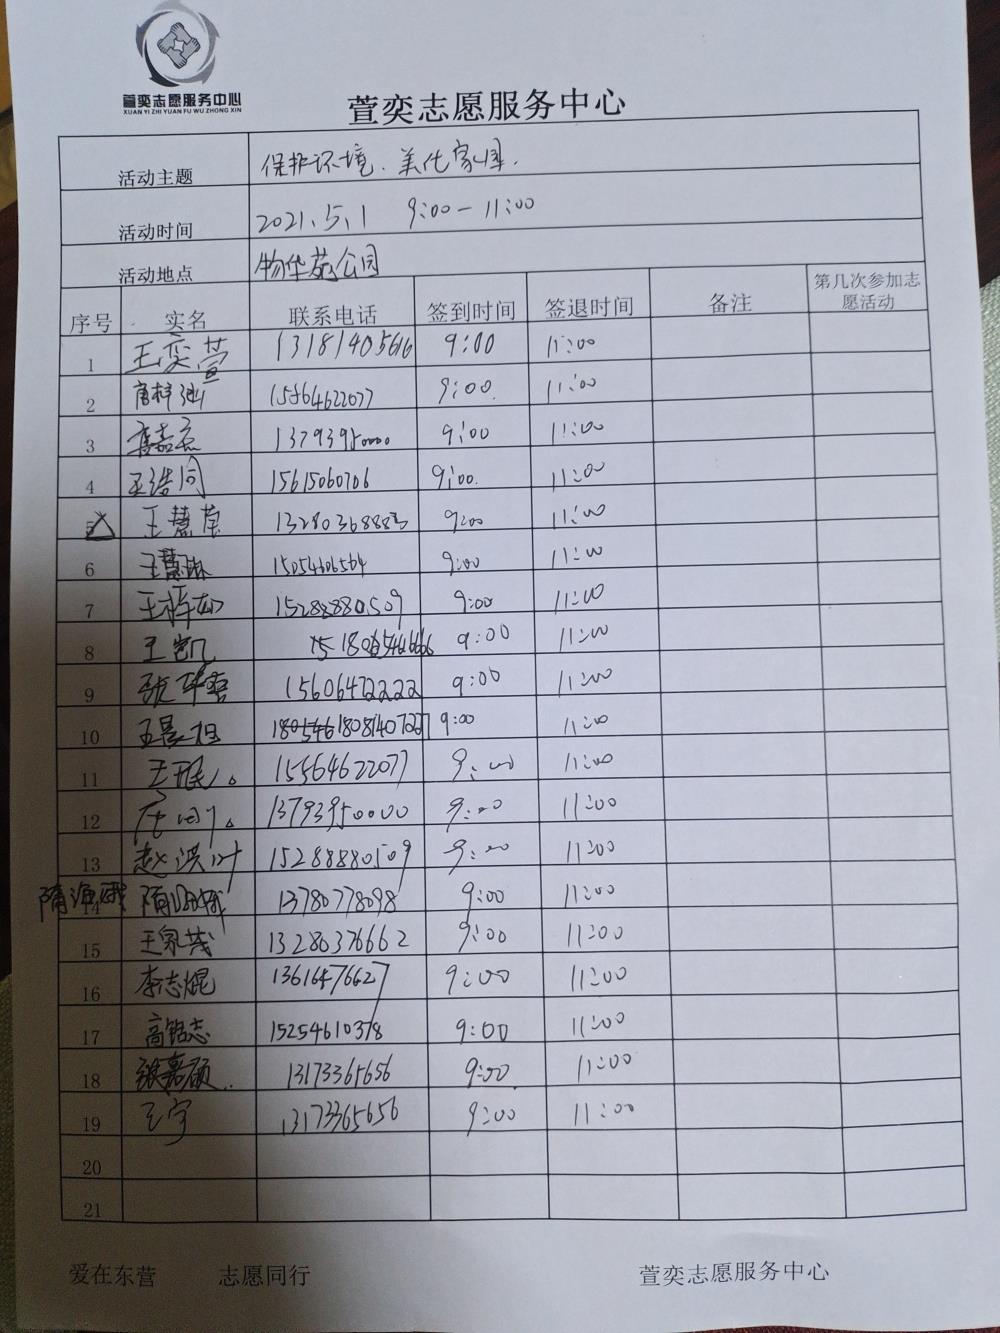 萱奕志愿服务中心
XUAN YI ZHI YUAN FU WU ZHONG XIN
萱奕志愿服务中心
活动主题 保护环境.美化家园.
活动时间 2021.5.1 9:00-11:00
活动地点 物华苑公园
序号 实名 联系电话 签到时间 签退时间 备注 第几次参加志愿活动
1 王奕萱 13181405616 9:00 11:00
2 15564622077 9:00 11:00
3 13793950000 9:00 11:00
4 王浩同 15615060706 9:00 11:00
5 王慧莹 13280368883 9:00 11:00
6 王慧琳 15054606564 9:00 11:00
7 王梓如 15288880509 9:00 11:00
8 王凯 18606546666 9:00 11:00
9 15606472222 9:00 11:00
10 18081407227 9:00 11:00
11 15564622077 9:00 11:00
12 13793950000 9:00 11:00
13 赵洪叶 15288880509 9:00 11:00
隋海娥 14 隋海娥 13780778098 9:00 11:00
15 王家茂 13280376662 9:00 11:00
16 李志焜 13616476627 9:00 11:00
17 高铭志 15254610378 9:00 11:00
18 张嘉硕 13173365656 9:00 11:00
19 王宇 13173365656 9:00 11:00
20
21
爱在东营 志愿同行 萱奕志愿服务中心